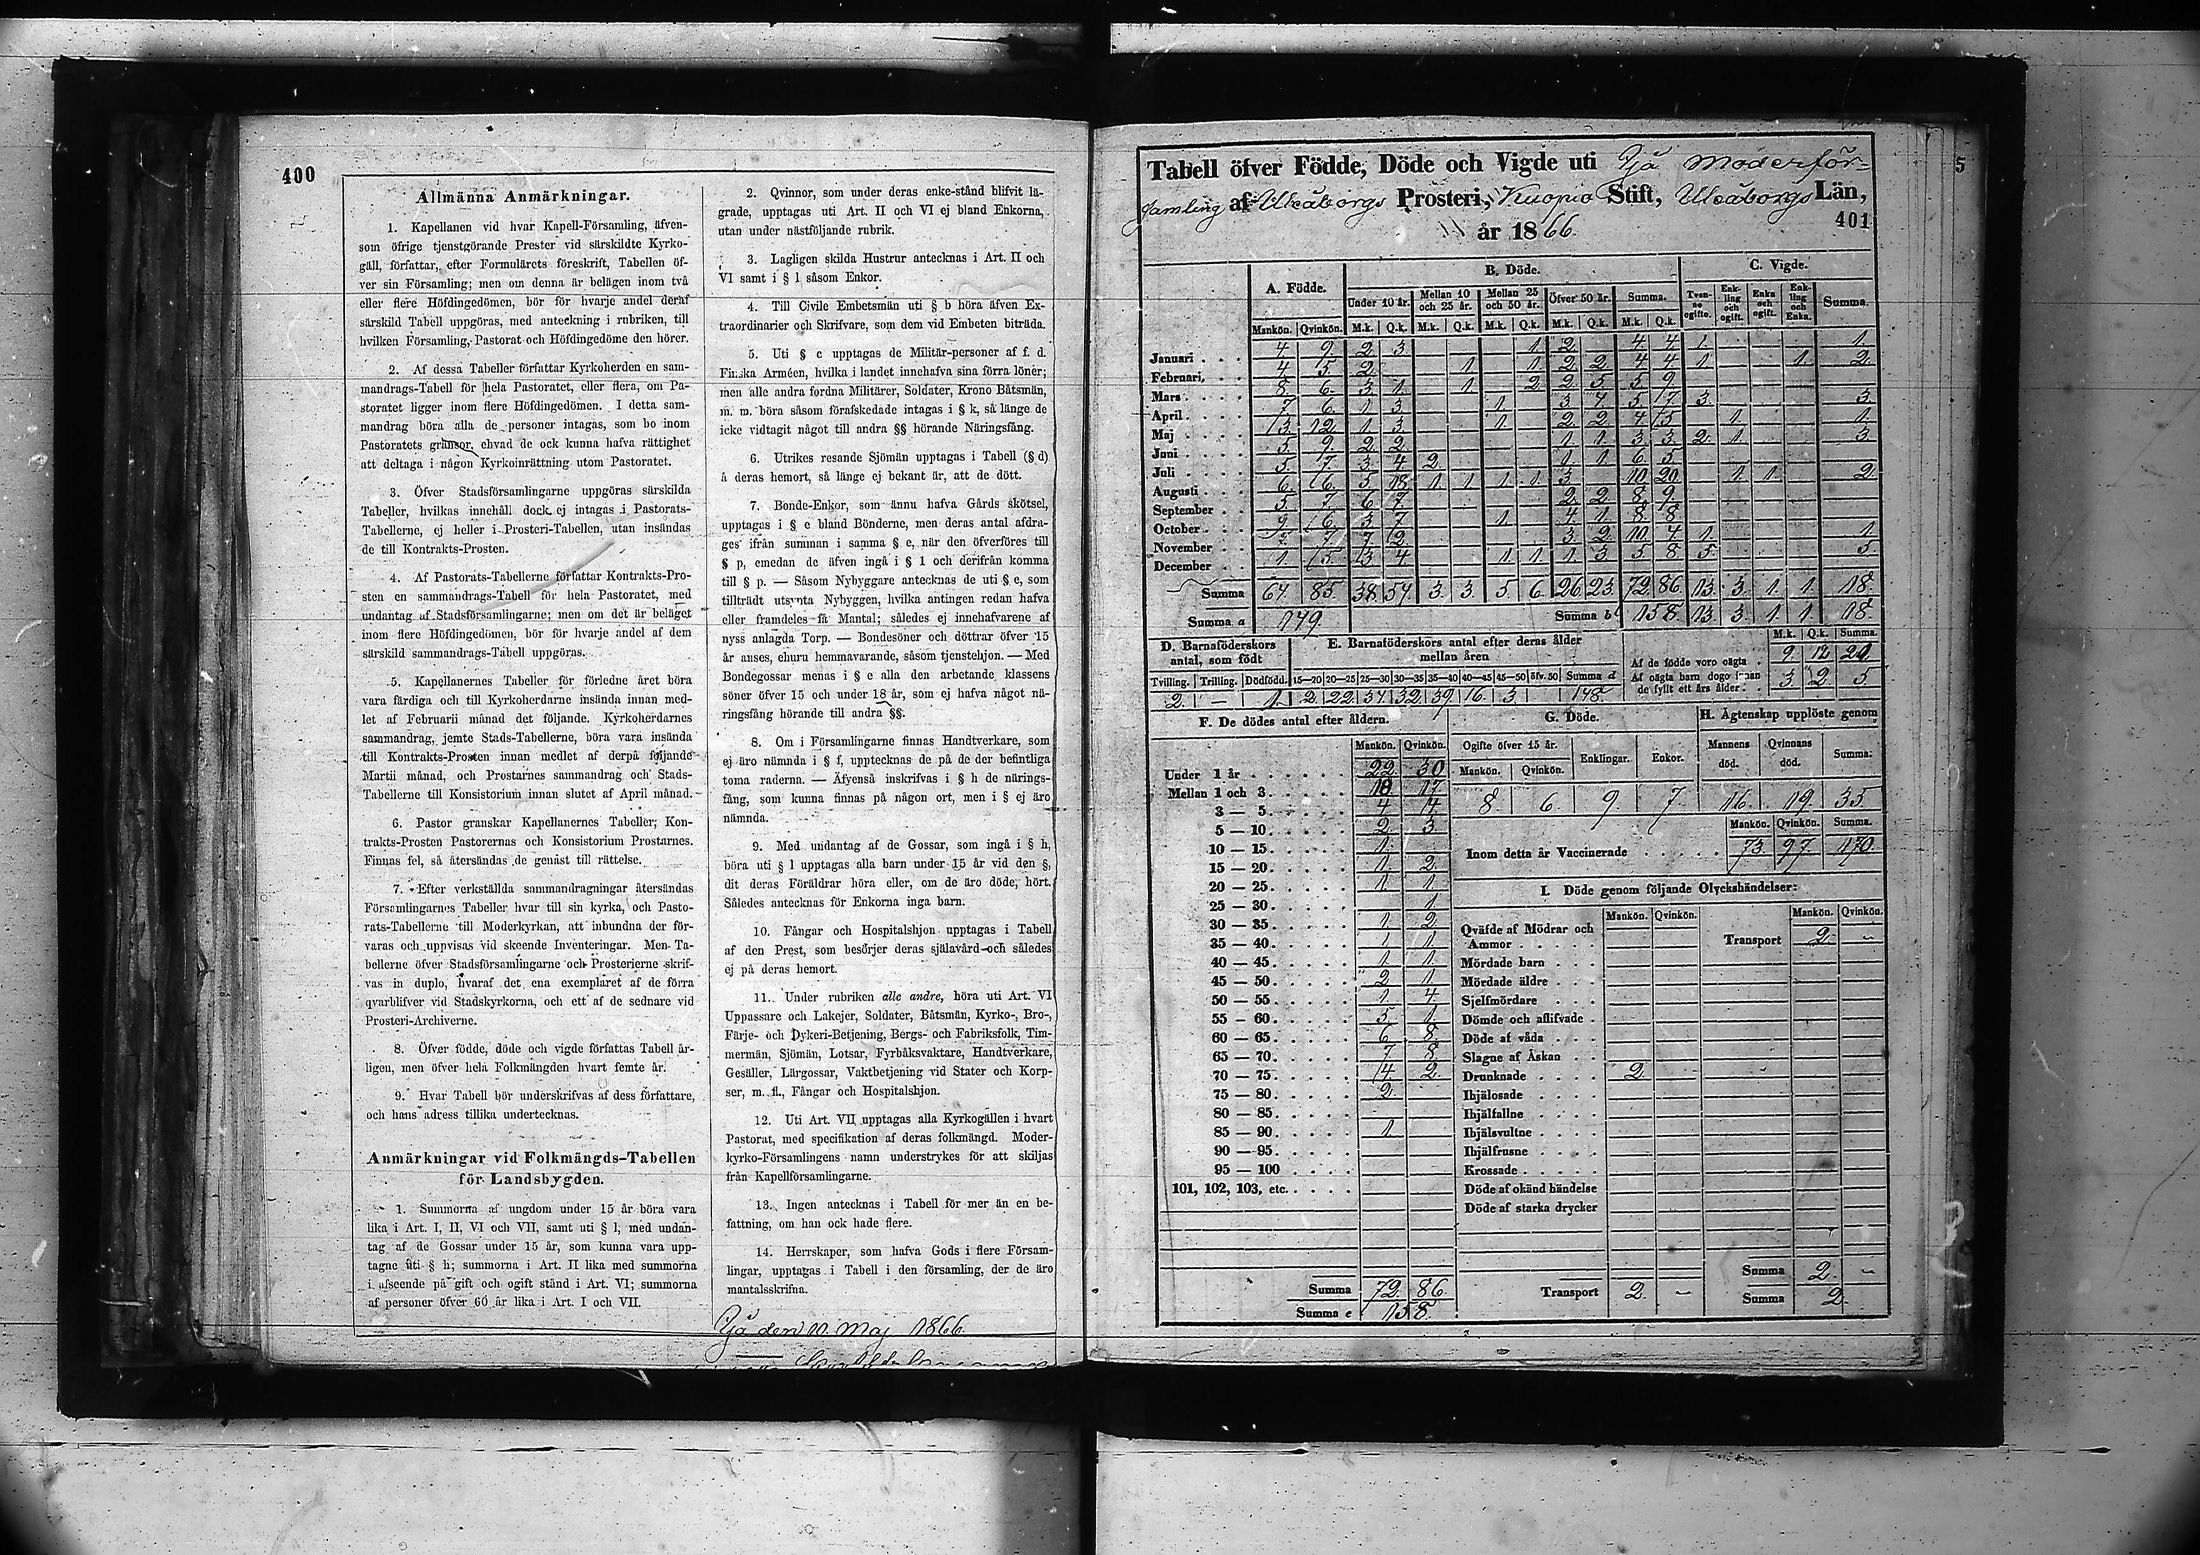 400
Allmänna Anmärkningar.
1. Kapellanen vid hvar Kapell-Församling, äfven-
som öfrige tjenstgörande Prester vid särskildte Kyrko-
gäll, författar, efter Formulärets föreskrift, Tabellen öf-
ver sin Församling; men om denna är belägen inom två
eller flere Höfdingedömen, bör för hvarje andel deraf
särskild Tabell uppgöras, med anteckning i rubriken, till
hvilken Församling, Pastorat och Höfdingedöme den hörer.
2. Af dessa Tabeller författar Kyrkoherden en sam-
mandrags-Tabell för hela Pastoratet, eller flera, om Pa-
storatet ligger inom flere Höfdingedömen. I detta sam-
mandrag böra alla de personer intagas, som bo inom
Pastoratets gränsor, ehvad de ock kunna hafva rättighet
att deltaga i någon Kyrkoinrättning utom Pastoratet.
3. Öfver Stadsförsamlingarne uppgöras särskilda
Tabeller, hvilkas innehåll dock ej intagas i Pastorats-
Tabellerne, ej heller i Prosteri-Tabellen, utan insändas
de till Kontrakts-Prosten.
4. Af Pastorats-Tabellerne författar Kontrakts-Pro-
sten en sammandrags-Tabell för hela Pastoratet, med
undantag af Stadsförsamlingarne; men om det är beläget
inom flere Höfdingedömen, bör för hvarje andel af dem
särskild sammandrags-Tabell uppgöras.
5. Kapellanernes Tabeller för förledne året böra
vara färdiga och till Kyrkoherdarne insända innan med-
let af Februarii månad det följande. Kyrkoherdarnes
sammandrag, jemte Stads-Tabellerne, böra vara insända
till Kontrakts-Prosten innan medlet af derpå följande
Martii månad, och Prostarnes sammandrag och Stads-
Tabellerne till Konsistorium innan slutet af April månad.
6. Pastor granskar Kapellanernes Tabeller; Kon-
trakts-Prosten Pastorernas och Konsistorium Prostarnes.
Finnas fel, så återsändas de genast till rättelse.
7. Efter verkställda sammandragningar återsändas
Församlingarnes Tabeller hvar till sin kyrka, och Pasto-
rats-Tabellerne till Moderkyrkan, att inbundna der för-
varas och uppvisas vid skeende Inventeringar. Men Ta-
bellerne öfver Stadsförsamlingarne och Prosterierne skrif-
vas in duplo, hvaraf det ena exemplaret af de förra
qvarblifver vid Stadskyrkorna, och ett af de sednare vid
Prosteri-Archiverne.
8. Öfver födde, döde och vigde författas Tabell år-
ligen, men öfver hela Folkmängden hvart femte år.
9. Hvar Tabell bör underskrifvas af dess författare,
och hans adress tillika undertecknas.
Anmärkningar vid Folkmängds-Tabellen
för Landsbygden.
1. Summorna af ungdom under 15 år böra vara
lika i Art. I, II, VI och VII, samt uti § l, med undan-
tag af de Gossar under 15 år, som kunna vara upp-
tagne uti § h; summorna i Art. II lika med summorna
i afseende på gift och ogift stånd i Art. VI; summorna
af personer öfver 60 år lika i Art. I och VII.
2. Qvinnor, som under deras enke-stånd blifvit lä-
grade, upptagas uti Art. II och VI ej bland Enkorna,
utan under nästföljande rubrik.
3. Lagligen skilda Hustrur antecknas i Art. II och
VI samt i § l såsom Enkor.
4. Till Civile Embetsmän uti § b höra äfven Ex-
traordinarier och Skrifvare, som dem vid Embeten biträda.
5. Uti § c upptagas de Militär-personer af f. d.
Finska Arméen, hvilka i landet innehafva sina förra löner;
men alle andra fordna Militärer, Soldater, Krono Båtsmän,
m. m. böra såsom förafskedade intagas i § k, så länge de
icke vidtagit något till andra §§ hörande Näringsfång.
6. Utrikes resande Sjömän upptagas i Tabell (§ d)
å deras hemort, så länge ej bekant är, att de dött.
7. Bonde-Enkor, som ännu hafva Gårds skötsel,
upptagas i § e bland Bönderne, men deras antal afdra-
ges ifrån summan i samma § e, när den öfverföres till
§ p, emedan de äfven ingå i § l och derifrån komma
till § p. — Såsom Nybyggare antecknas de uti § e, som
tillträdt utsynta Nybyggen, hvilka antingen redan hafva
eller framdeles få Mantal; således ej innehafvarene af
nyss anlagda Torp. — Bondesöner och döttrar öfver 15
år anses, ehuru hemmavarande, såsom tjenstehjon. — Med
Bondegossar menas i § e alla den arbetande klassens
söner öfver 15 och under 18 år, som ej hafva något nä-
ringsfång hörande till andra §§.
8. Om i Församlingarne finnas Handtverkare, som
ej äro nämnda i § f, upptecknas de på de der befintliga
toma raderna. — Äfvenså inskrifvas i § h de närings-
fång, som kunna finnas på någon ort, men i § ej äro
nämnda.
9. Med undantag af de Gossar, som ingå i § h,
böra uti § l upptagas alla barn under 15 år vid den §,
dit deras Föräldrar höra eller, om de äro döde, hört.
Således antecknas för Enkorna inga barn.
10. Fångar och Hospitalshjon upptagas i Tabell
af den Prest, som besörjer deras själavård och således
ej på deras hemort.
11. Under rubriken alle andre, höra uti Art. VI
Uppassare och Lakejer, Soldater, Båtsmän, Kyrko-, Bro-,
Färje- och Dykeri-Betjening, Bergs- och Fabriksfolk, Tim-
mermän, Sjömän, Lotsar, Fyrbåksvaktare, Handtverkare,
Gesäller, Lärgossar, Vaktbetjening vid Stater och Korp-
ser, m. fl., Fångar och Hospitalshjon.
12. Uti Art. VII upptagas alla Kyrkogällen i hvart
Pastorat, med specifikation af deras folkmängd. Moder-
kyrko-Församlingens namn understrykes för att skiljas
från Kapellförsamlingarne.
13. Ingen antecknas i Tabell för mer än en be-
fattning, om han ock hade flere.
14. Herrskaper, som hafva Gods i flere Försam-
lingar, upptagas i Tabell i den församling, der de äro
mantalsskrifna.
Ijå den 10. Maj 1866.
Tabell öfver Födde, Döde och Vigde uti Ijå Moderför-
samling af Uleåborgs Prosteri, Kuopio Stift, Uleåborgs Län,
år 1866.
401
A. Födde. B. Döde. C. Vigde.
Under 10 år. Mellan 10 och 25 år. Mellan 25 och 50 år. Öfver 50 år. Summa. Tven-ne ogifte. Enk-ling och ogift. Enka och ogift. Enk-ling och Enka. Summa.
Mankön. Qvinkön. M.k. Q.k. M.k. Q.k. M.k. Q.k. M.k. Q.k. M.k. Q.k.
Januari . . . 4 9 2 3 1 2 4 4 1. 1.
Februari, . . 4 5 2 1 1 2 2 4 4 1 1 2.
Mars . . . 8 6 3 1 1 2 2 5 5 9
April . . . 7 6 1 3 1 3 4 5 7 3 3
Maj . . . 13 12 1 3 1 2 2 4 5 1 1
Juni . . . 5 9 2 2 1 1 3 3 2 1 3
Juli . . . 5 7 3 4 2 1 1 6 5
Augusti . . . 6 6 5 18 1 1 1 1 3 10 20 1 1 2
September . . . 5 7 6 7 2 2 8 9
October . . . 9 6 3 7 1 4 1 8 8
November . . 7 7 2 3 2 10 4 1 1
December . . 1 5 3 4 1 1 1 3 5 8 5 5
Summa 64. 85. 38. 54. 3. 3. 5. 6. 26. 23. 72. 86. 13. 3. 1. 1. 18.
Summa a 149 Summa b 158. 13. 3. 1. 1. 18.
D. Barnaföderskors antal, som födt
E. Barnaföderskors antal efter deras ålder mellan åren
M.k. Q.k. Summa.
Af de födde voro oägta . 9 12 21
Af oägta barn dogo innan de fyllt ett års ålder . 3 2 5
Tvilling. Trilling. Dödfödd. 15—20 20—25 25—30 30—35 35—40 40—45 45—50 öfv. 50 Summa d
2. — 1. 2. 22. 34. 32. 39. 16. 3. 148.
F. De dödes antal efter åldern.
Mankön. Qvinkön.
Under 1 år . . . 22 30
Mellan 1 och 3 . . . 10 17
3 — 5 . . . 4 4
5 — 10 . . . 2 3
10 — 15 . . . 1
15 — 20 . . . 1 2
20 — 25 . . . 1 1
25 — 30 . . . 1
30 — 35 . . . 1 2
35 — 40 . . . 1 1
40 — 45 . . . 1 1
45 — 50 . . . 2 1
50 — 55 . . . 1 4
55 — 60 . . . 5 1
60 — 65 . . . 6 8
65 — 70 . . . 7 8
70 — 75 . . . 4 2
75 — 80 . . . 2
80 — 85 . . .
85 — 90 . . . 1
90 — 95 . . .
95 — 100 . . .
101, 102, 103, etc. . . .
Summa 72. 86.
Summa e 158.
G. Döde.
Ogifte öfver 15 år. Enklingar. Enkor.
Mankön. Qvinkön.
8 6 9 7
H. Ägtenskap upplöste genom
Mannens död. Qvinnans död. Summa.
16. 19. 35.
Mankön. Qvinkön. Summa.
Inom detta år Vaccinerade . . . 73. 97. 170.
I. Döde genom följande Olyckshändelser:
Mankön. Qvinkön. Mankön. Qvinkön.
Qväfde af Mödrar och
Ammor . . . Transport 2 —
Mördade barn . . .
Mördade äldre . . .
Sjelfmördare . . .
Dömde och aflifvade .
Döde af våda . . .
Slagne af Åskan . .
Drunknade . . . 2
Ihjälosade . . .
Ihjälfallne . . .
Ihjälsvultne . . .
Ihjälfrusne . . .
Krossade . . .
Döde af okänd händelse
Döde af starka drycker
Summa 2. —
Transport 2. — Summa 2.
5